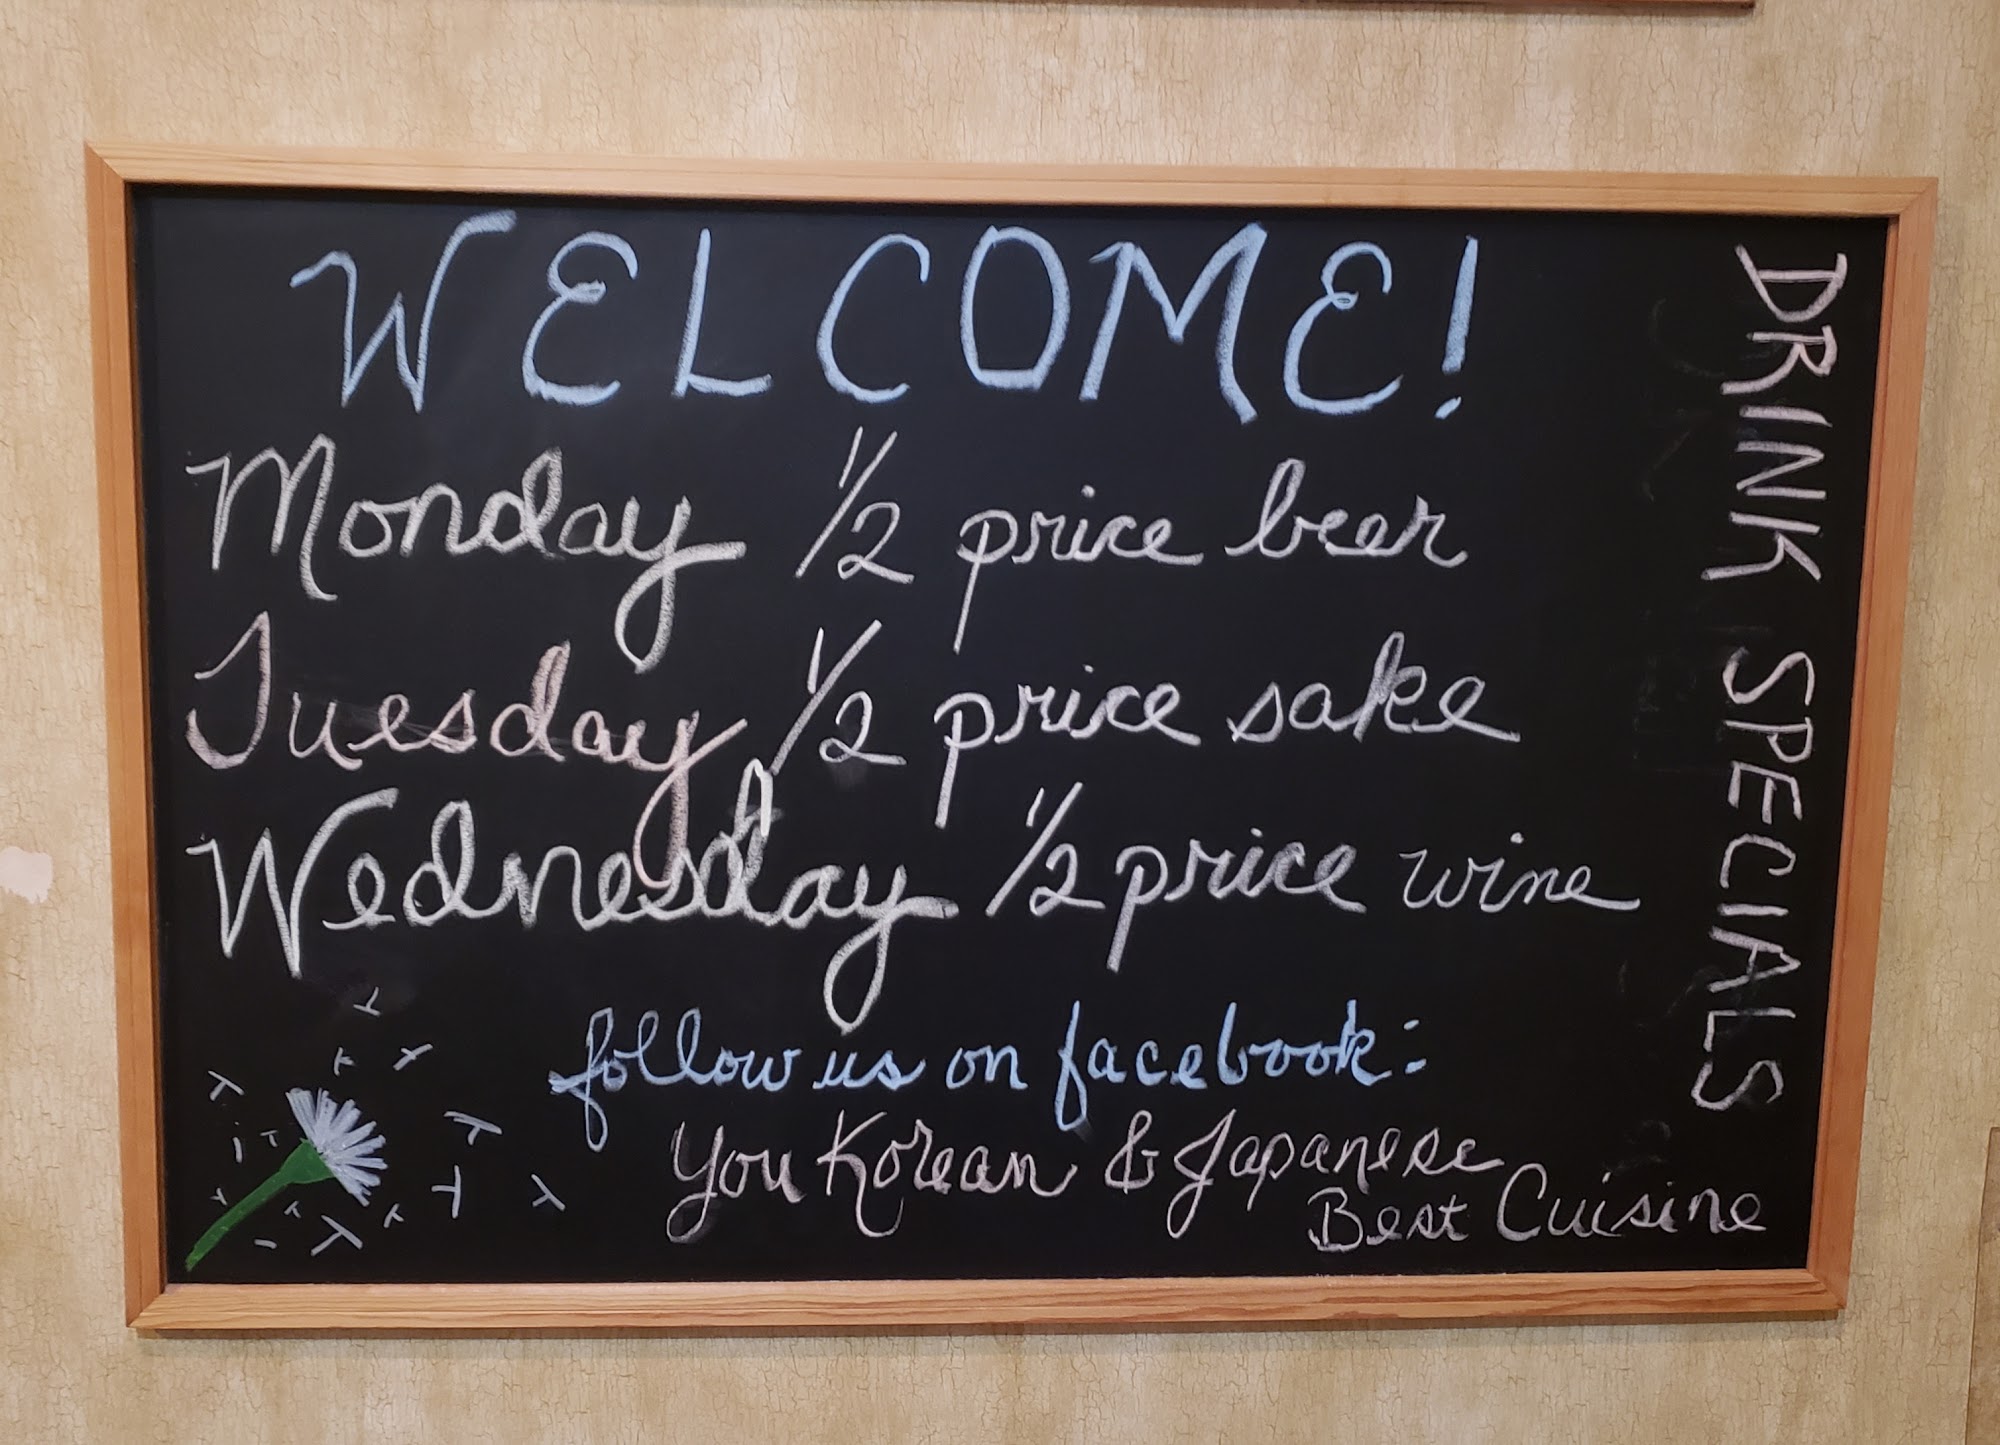 WELCOME!
Monday 1/2 price beer
Tuesday 1/2 price sake
Wednesday 1/2 price wine
follow us on facebook:
You Korean & Japanese
Best Cuisine
DRINK SPECIALS